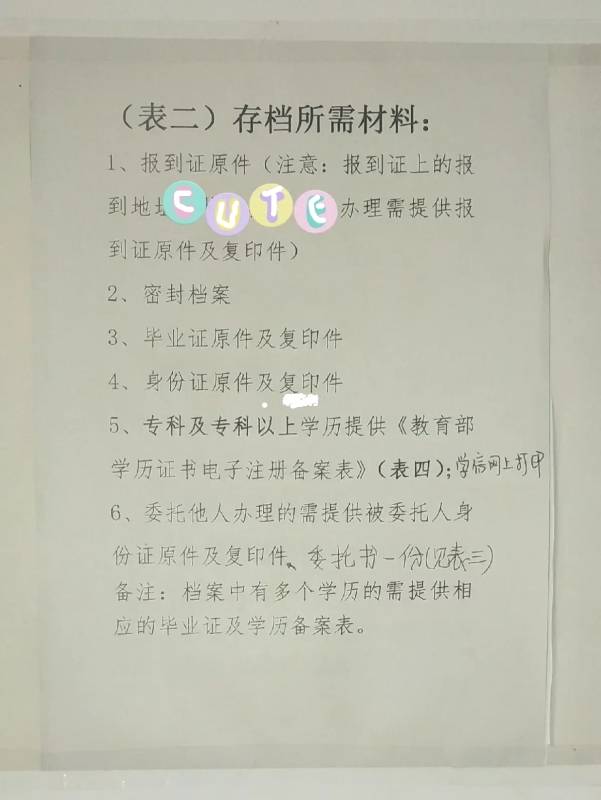 （表二）存档所需材料：
1、报到证原件（注意：报到证上的报
到地址CUTE办理需提供报
到证原件及复印件）
2、密封档案
3、毕业证原件及复印件
4、身份证原件及复印件
5、专科及专科以上学历提供《教育部
学历证书电子注册备案表》（表四）；学信网上打印
6、委托他人办理的需提供被委托人身
份证原件及复印件、委托书一份(见表三)
备注：档案中有多个学历的需提供相
应的毕业证及学历备案表。